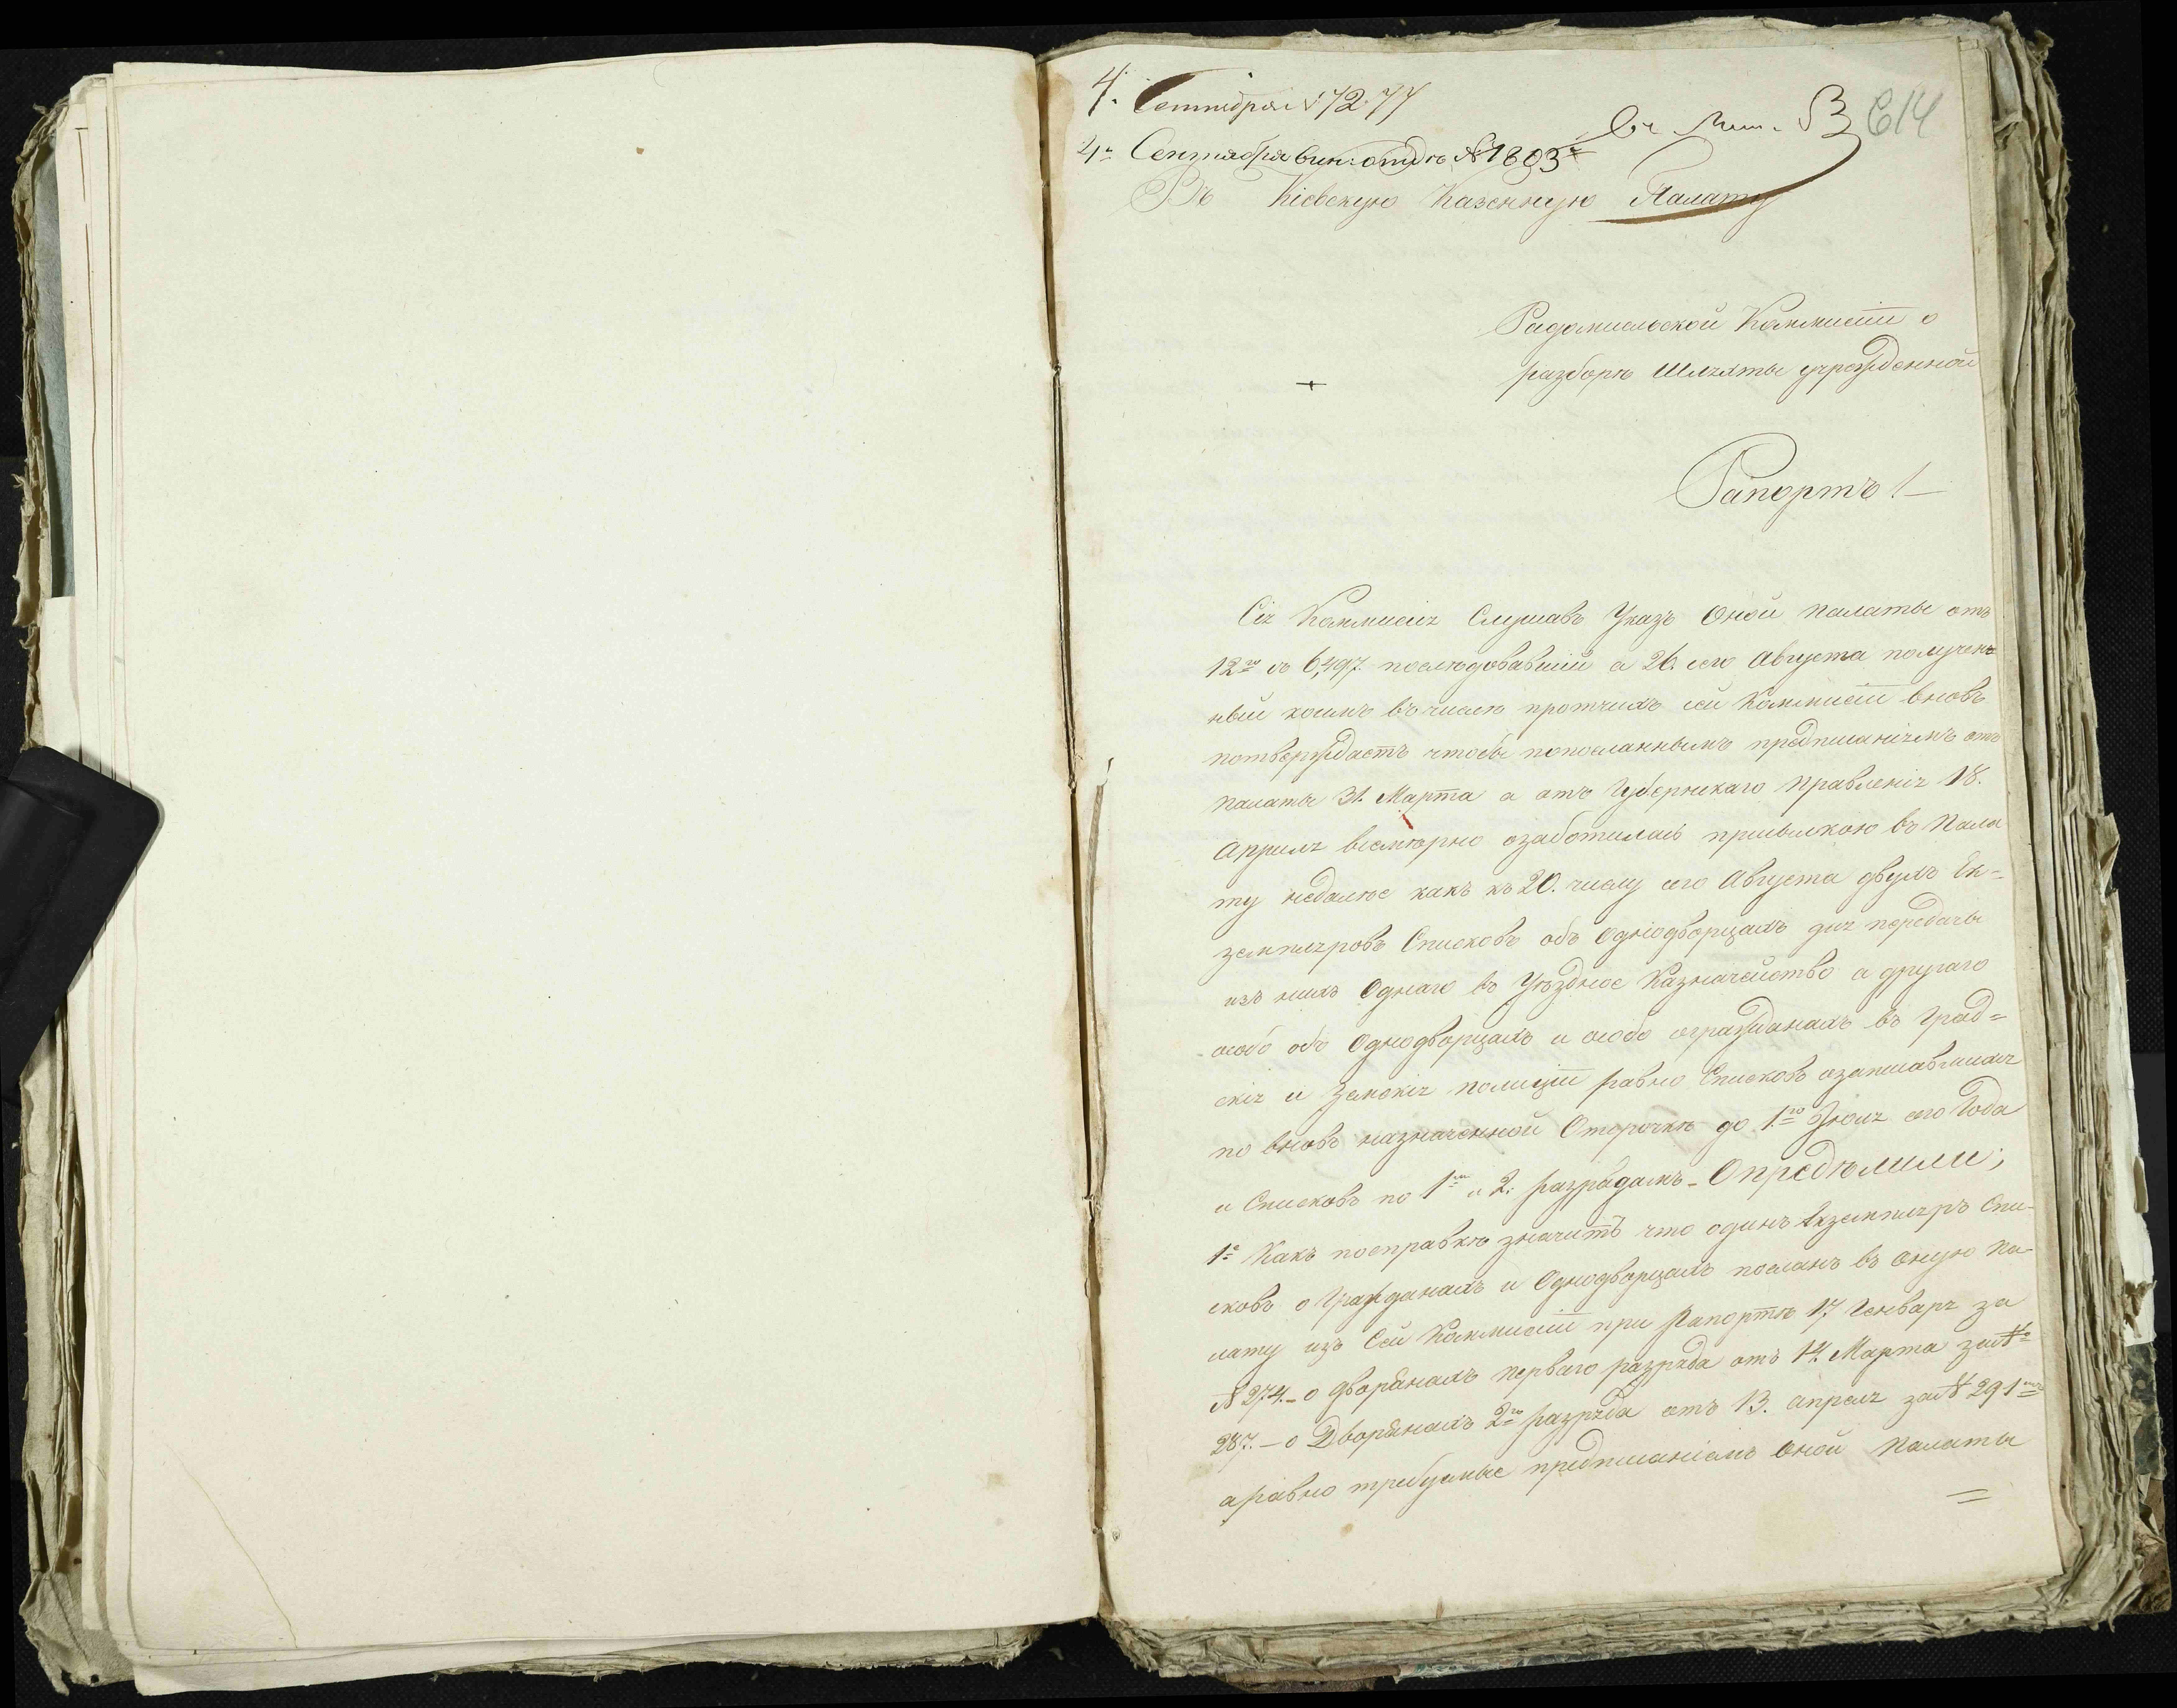 4. Сентября 7277
614
4го Сентября вин: отдѣ № 1803
Въ Кіевскую Казенную Палату
Радомысльской Коммисіи о
разборѣ Шляхты учрежденной
Рапортъ
Сія Коммисія Слушавъ Указъ Оной палаты отъ
12го за 6,497. послѣдовавшій а 26. сего Августа получен-
ный коимъ въ числѣ протчихъ сей Коммисіи вновь
потверждаетъ чтобы попосланнымъ предписаніямъ отъ
палаты 31. Марта а отъ Губернскаго правленія 18.
апрѣля всемѣрно озаботилась присылкою въ пала
ту недалѣе какъ къ 20. числу сего Августа двухъ Ек-
земпляровъ Списковъ объ Однодворцахъ для передачи
изъ нихъ Однаго въ Уѣздное Казначейство а другаго
особо объ Однодворцахъ и особо огражданахъ въ Град-
скія и Земскія полиціи равно Списковъ озаписавшихся
по вновь назначенной Отсрочкѣ до 1го Іюля сего Года
и Списковъ по 1му и 2: разрядамъ - Опредѣлили;
1е Какъ посправкѣ значитъ что одинъ Екземпляръ Спи-
сковъ о Гражданахъ и Однодворцахъ посланъ въ оную Па-
лату изъ Сей Коммисіи при Рапортѣ 17. Генваря за
№ 274. - о дворянахъ перваго разряда отъ 14. Марта за №
287. - о Дворянахъ 2го разряда отъ 13. апреля за № 291мъ
а равно требуемые предписаніемъ Оной Палаты